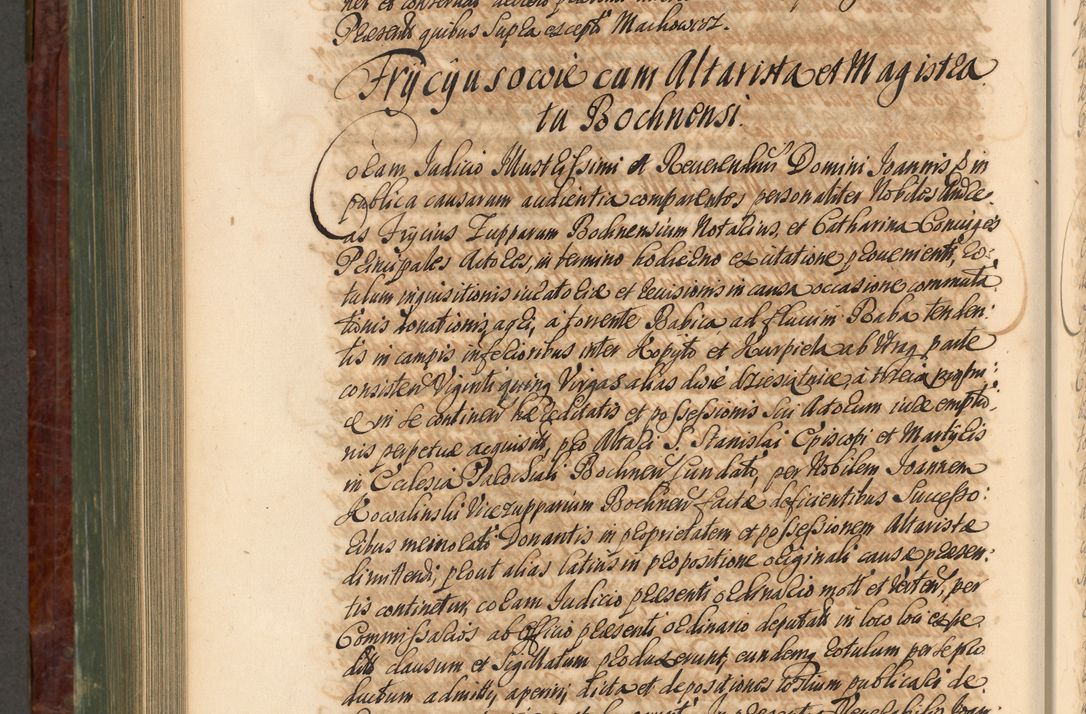 Praesenti quibus supra excepto Machowicz.
Frycyusowie cum Altarista et Magistra
tu Bochnensi.
Coram Judicio Illustrissimi et Reverendissi Domini Joannis S in
publica causarum audientia comparentes personaliter Nobiles Andre
as Frycius Zupparum Bochnensium Notarius, et Catharina Conjuges
Principales Actores, in termino hodierno ex citatione provenienti, Ro:
tulum inquisitionis juratoriae et revisionis in causa occasione commuta
tionis donationis, agri, a torrente Babica ad fluvium Raba tenden:
tis in campis inferioribus inter Kopyto et Kurpiela ab utraq parte
consisten Viginti quinq Virgas alias dwie dziesiątnice, a trzecia
ae in se continen haereditatis et possessionis sui Actorum jure emptio:
nis perpetuae acquisiti, pro Altari S. Stanislai Episcopi et Martyris
in Ecclesia Parochiali Bochnen fundato, per Nobilem Joannem
Kowalinski Vicezupparium Bochnen factae deficientibus Successo:
ribus memorati Donantis in proprietatem et possessionem Altaristae
dimittendi, prout alias latius in propositione originali causae praesen:
tis continetur, coram Judicio praesenti ordinario mott et verten, per
Commissarios ab Officio praesenti, ordinario deputatos in loco loci expe
diti clausum et Sigillatum produxerunt, eundemq rotulum per se pro
ductum admitti, aperiri, dicta et depositiones testium publicari de